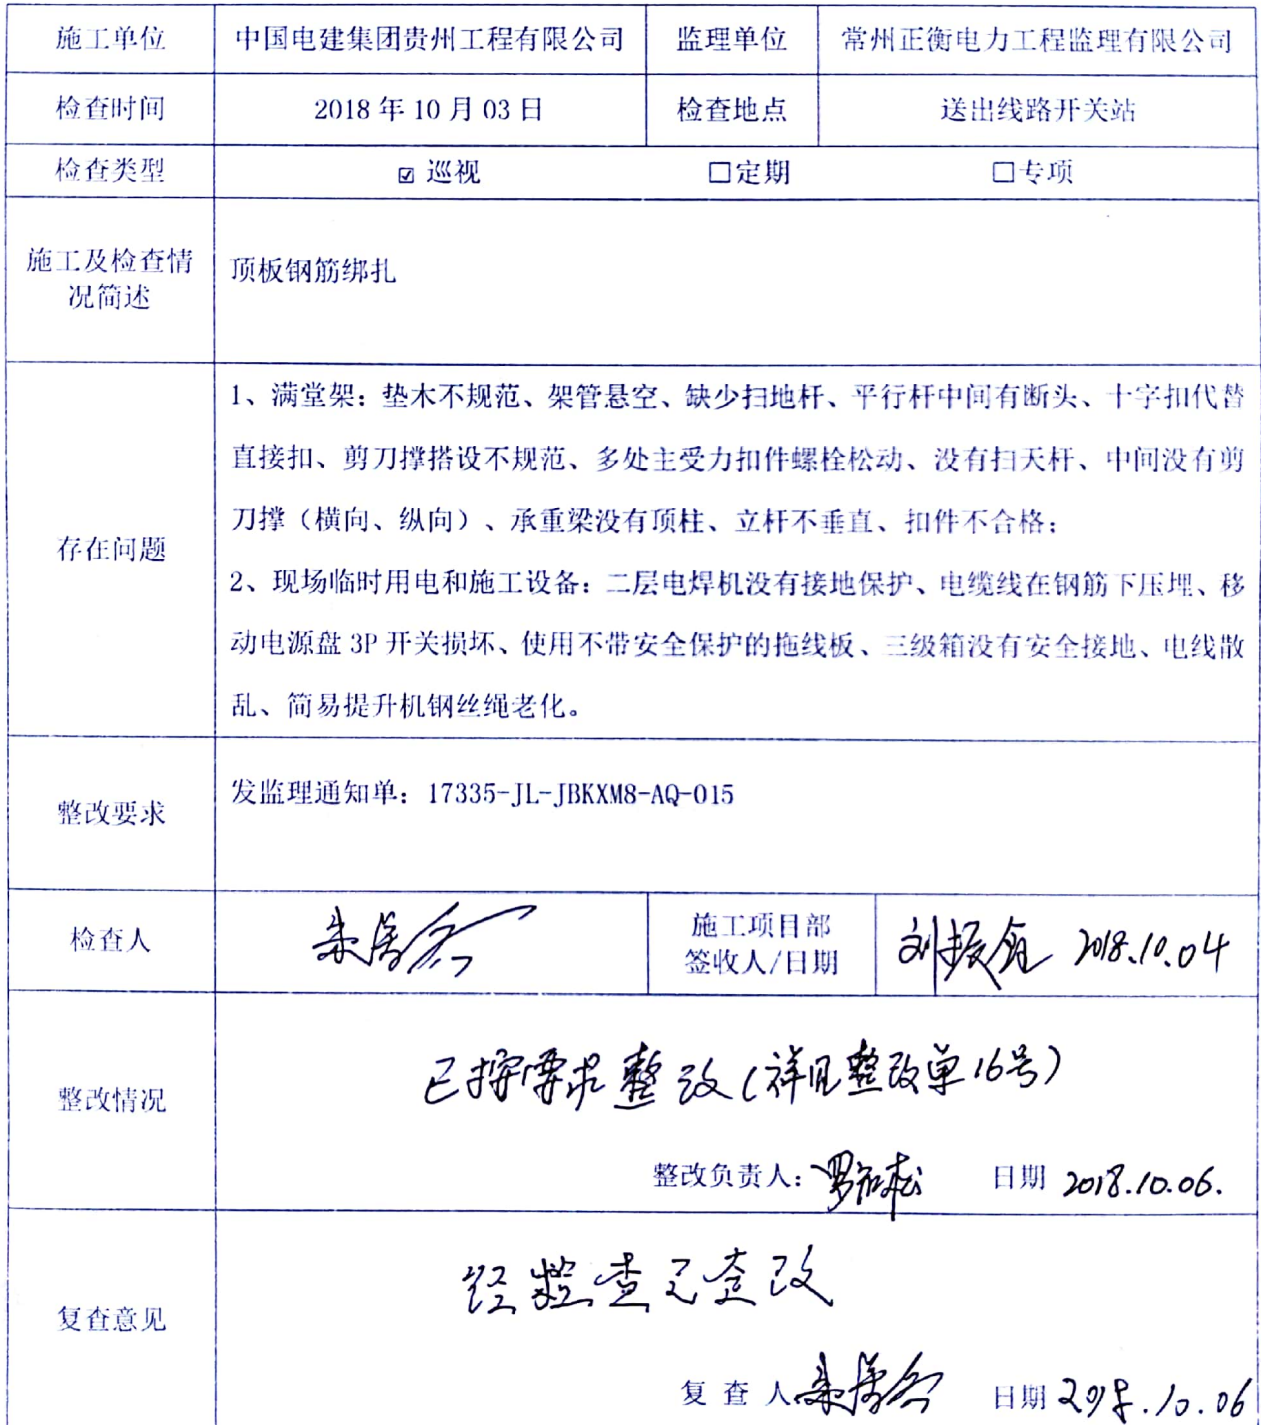 施工单位 中国电建集团贵州工程有限公司 监理单位 常州正衡电力工程监理有限公司
检查时间 2018年10月03日 检查地点 送出线路开关站
检查类型 ☑巡视 □定期 □专项
施工及检查情
况简述
顶板钢筋绑扎
存在问题
1、满堂架：垫木不规范、架管悬空、缺少扫地杆、平行杆中间有断头、十字扣代替
直接扣、剪刀撑搭设不规范、多处主受力扣件螺栓松动、没有扫天杆、中间没有剪
刀撑（横向、纵向）、承重梁没有顶柱、立杆不垂直、扣件不合格；
2、现场临时用电和施工设备：二层电焊机没有接地保护、电缆线在钢筋下压埋、移
动电源盘3P开关损坏、使用不带安全保护的拖线板、三级箱没有安全接地、电线散
乱、简易提升机钢丝绳老化。
整改要求
发监理通知单：17335-JL-JBKXM8-AQ-015
检查人
施工项目部
签收人/日期
刘振 2018.10.04
整改情况
已按要求整改（祥见整改单16号）
整改负责人： 日期 2018.10.06.
复查意见
经检查已整改
复查人 日期 2018.10.06